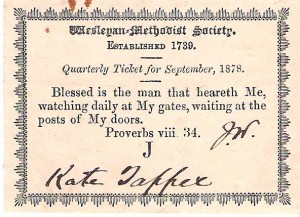 Wesleyan-Methodist Society.
ESTABLISHED 1739.
Quarterly Ticket for September, 1878.
Blessed is the man that heareth Me,
watching daily at My gates, waiting at the
posts of My doors.
Proverbs viii. 34. J.W.
J
Kate Tapper